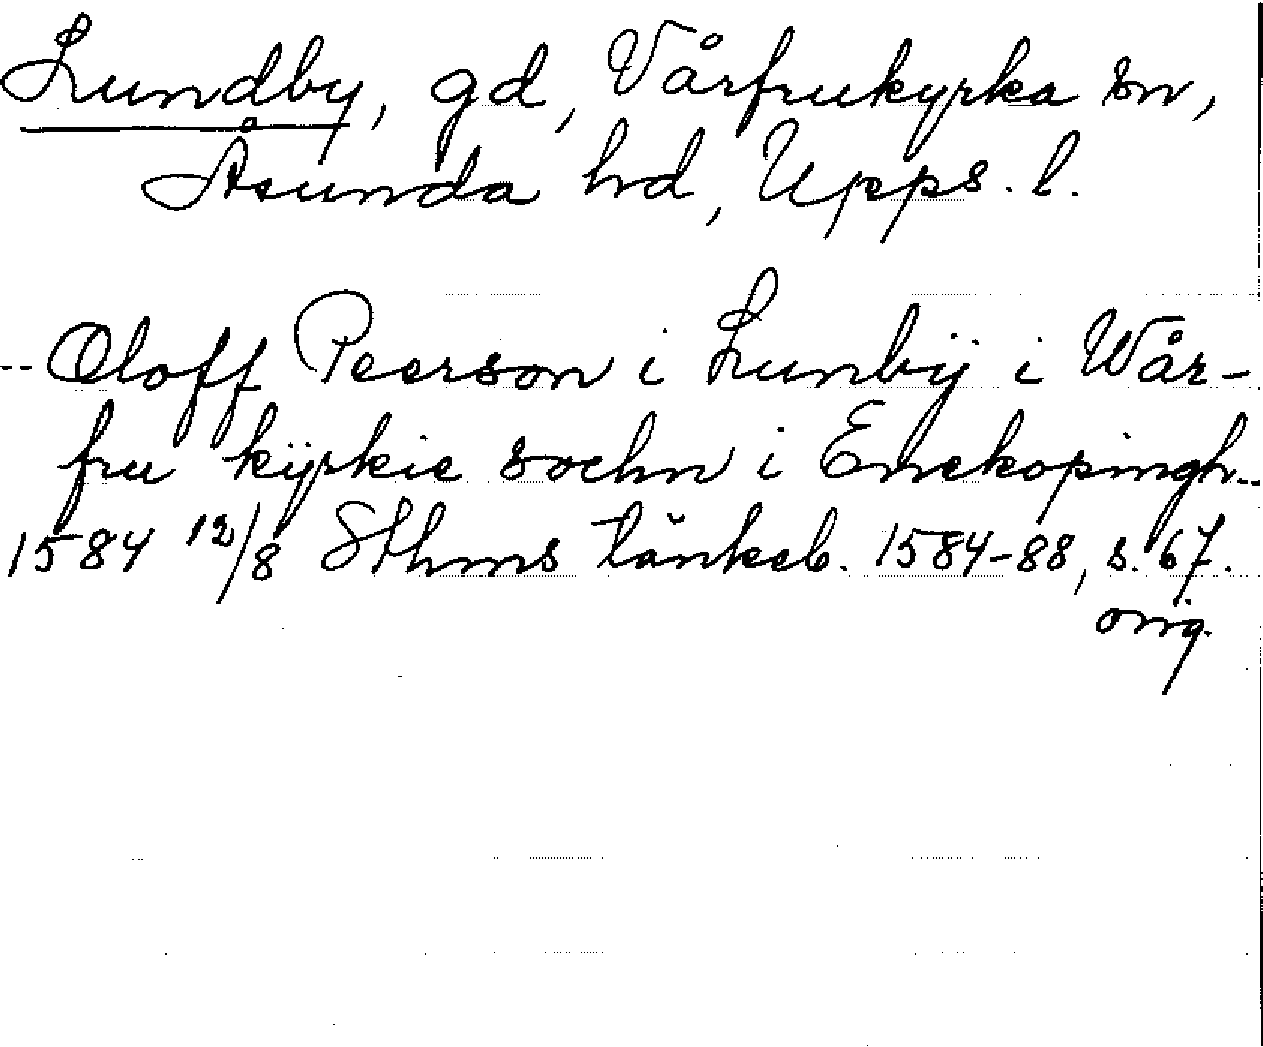 Lundby, gd, Vårfrukyrka sn,
Åsunda hd, Upps. l.
-- Oloff Peerson i Lunbÿ i Wår-
fru kÿrkie sochn i Enekopingh--
1584 12/8 Sthms tänkeb. 1584-88, s. 67.
orig.